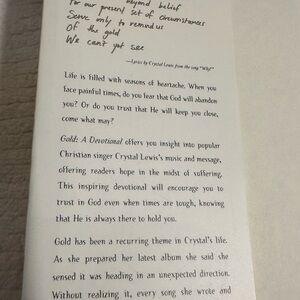 beyond belief
For our present set of circumstances
Serve only to remind us
Of the gold
We can't yet see
—Lyrics by Crystal Lewis from the song "Why?"
Life is filled with seasons of heartache. When you
face painful times, do you fear that God will abandon
you? Or do you trust that He will keep you close,
come what may?
Gold: A Devotional offers you insight into popular
Christian singer Crystal Lewis's music and message,
offering readers hope in the midst of suffering.
This inspiring devotional will encourage you to
trust in God even when times are tough, knowing
that He is always there to hold you.
Gold has been a recurring theme in Crystal's life.
As she prepared her latest album she said she
sensed it was heading in an unexpected direction.
Without realizing it, every song she wrote and